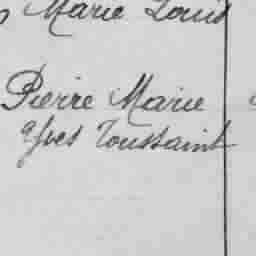 Marie Louis
Pierre Marie
Yves Toussaint